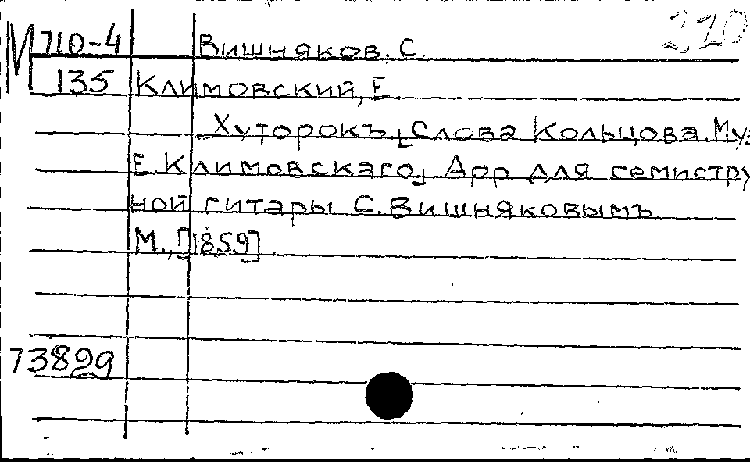 220
М 710-4 Вишняков. С.
135 Климовский, Е.
Хуторокъ, Слова Кольцова. Муз
Е. Климовскаго, Арр для семистру
ной гитары С. Вишняковымъ
М., [1859]
73829